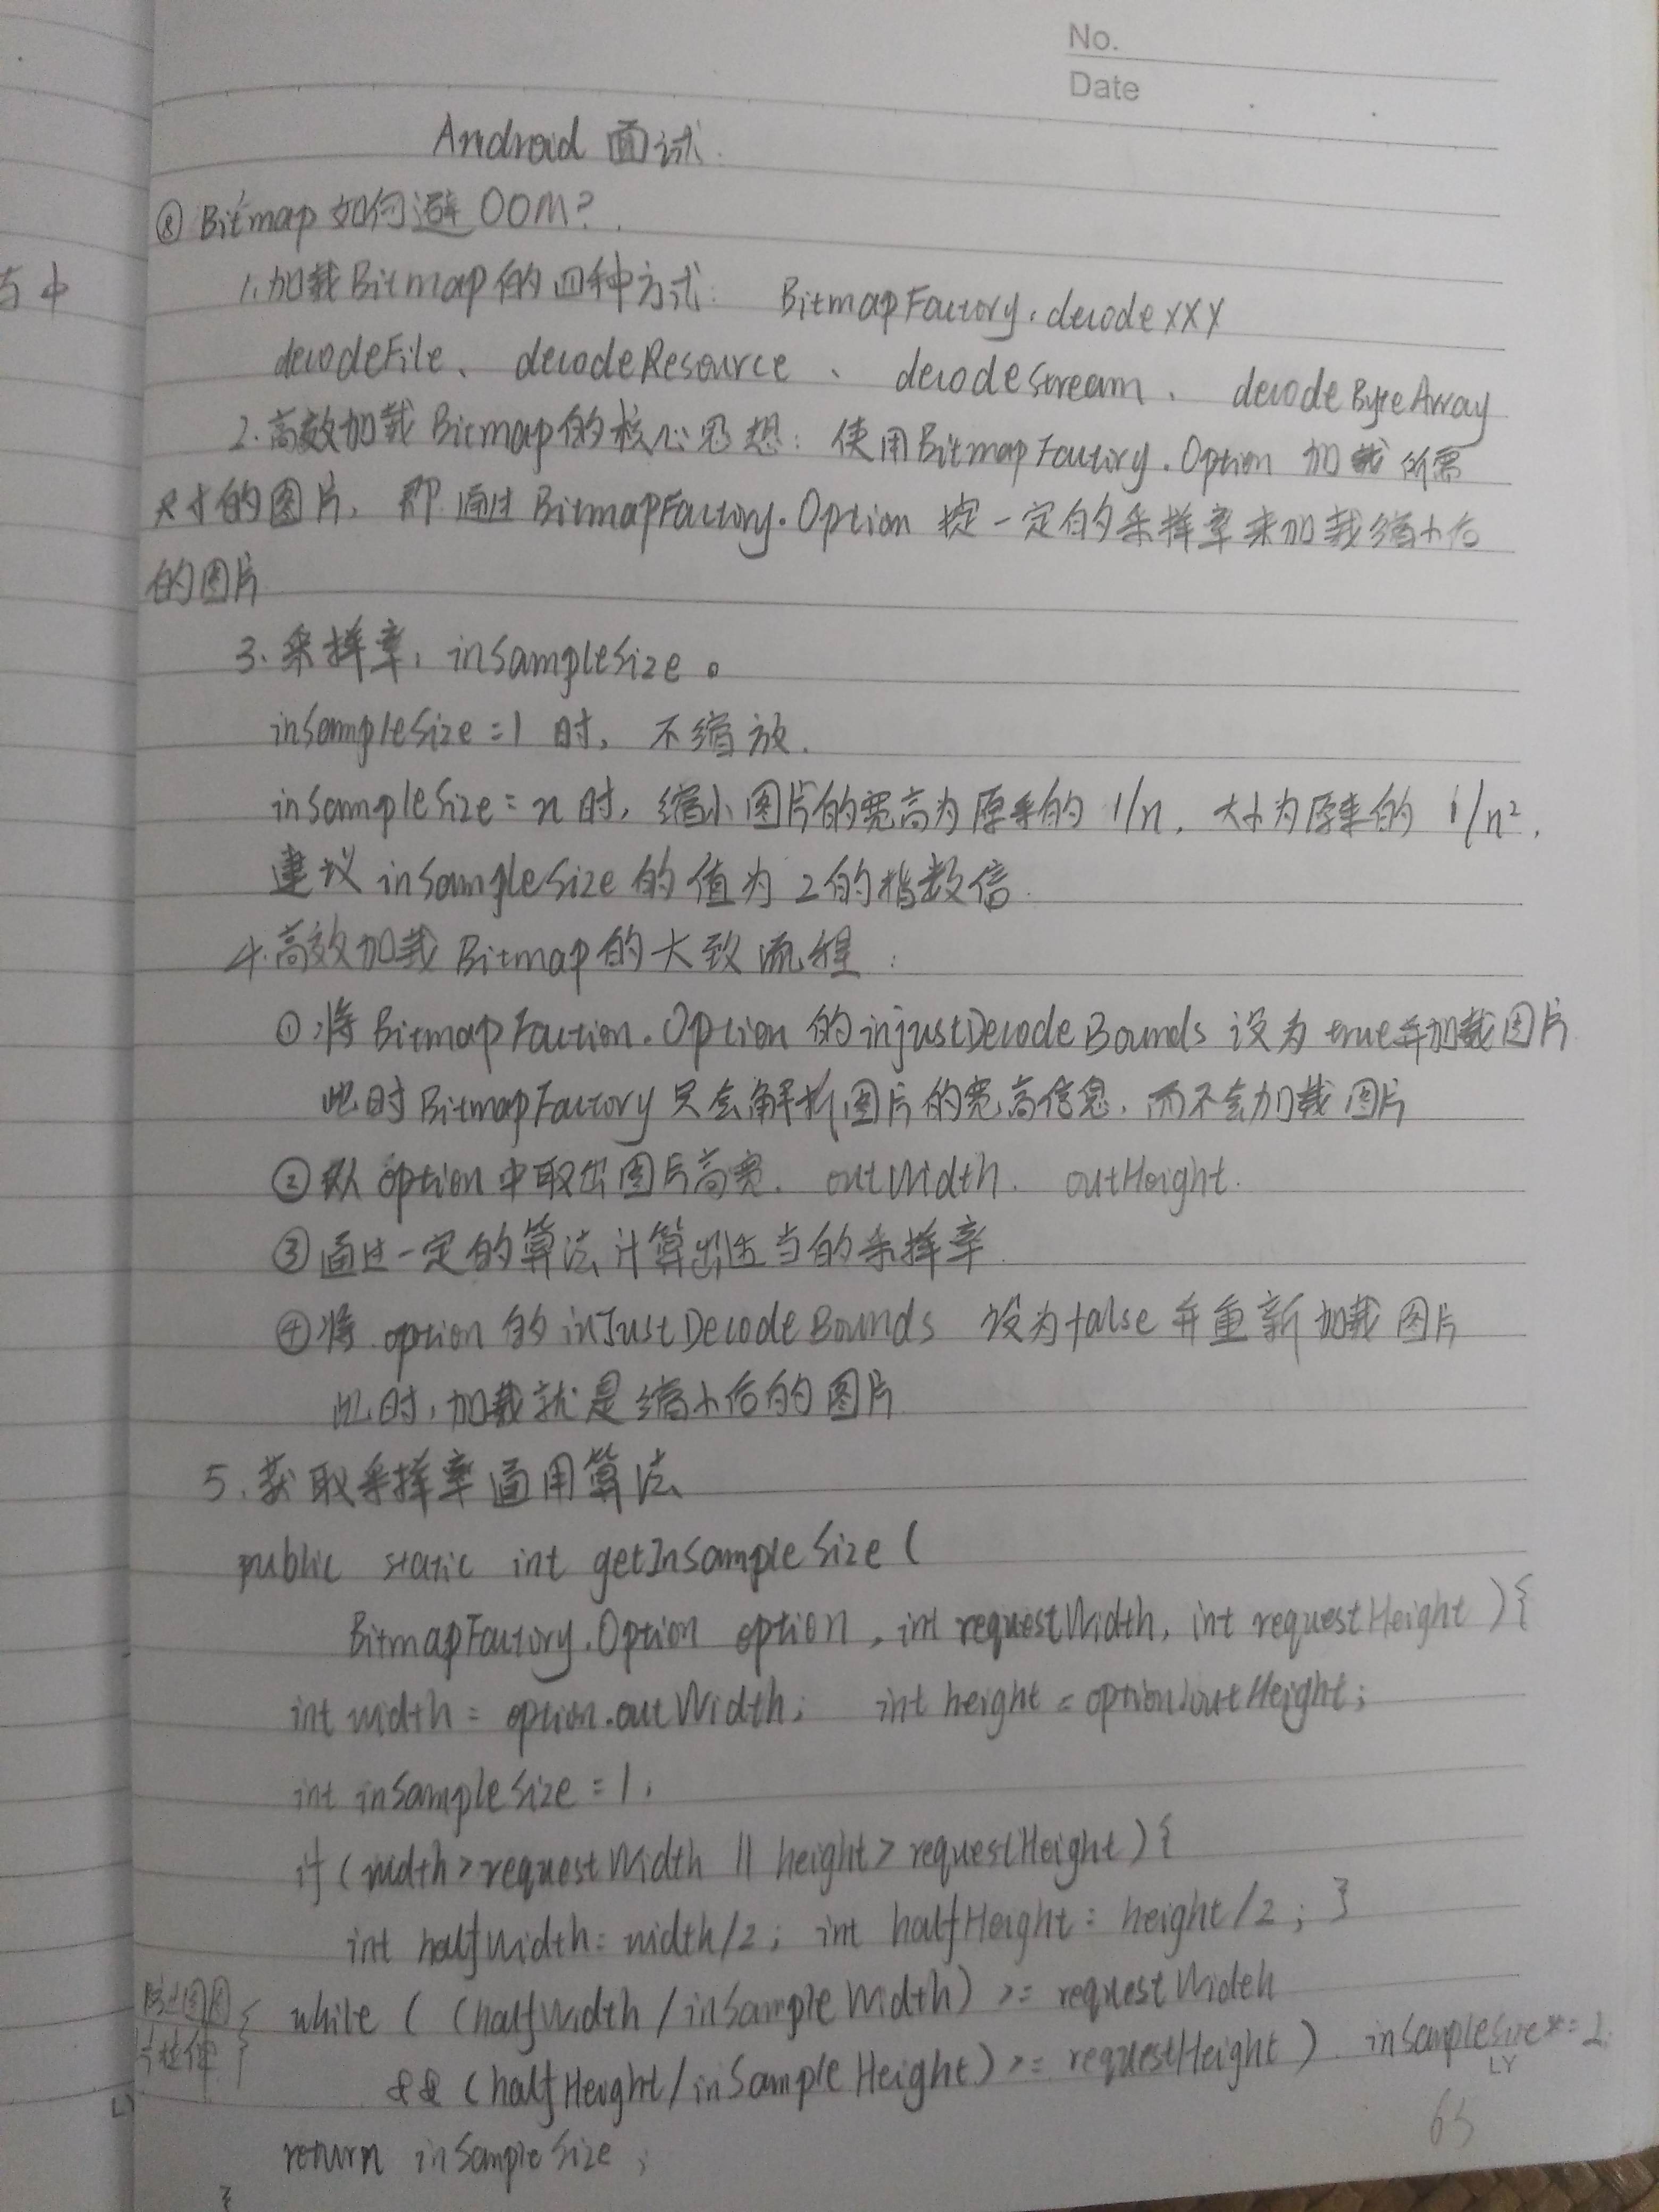 No.
Date
Android 面试
⑧ Bitmap 如何避 OOM?
与中
1.加载Bitmap的四种方式: BitmapFactory.decodeXXX
decodeFile、 decodeResource 、 decodeStream、 decodeByteArray
2.高效加载Bitmap的核心思想: 使用BitmapFactory.Option 加载所需
尺寸的图片, 即通过BitmapFactory.Option 按一定的采样率来加载缩小后
的图片
3.采样率, inSampleSize。
inSampleSize=1 时, 不缩放.
inSampleSize=n时, 缩小图片的宽高为原来的 1/n, 大小为原来的 1/n²,
建议 inSampleSize 的值为 2的指数倍.
4.高效加载 Bitmap的大致流程:
①将 BitmapFaction.Option 的injustDecodeBounds 设为 true并加载图片
此时BitmapFactory只会解析图片的宽高信息, 而不会加载图片
②从 option中取出图片高宽. outWidth. outHeight.
③通过一定的算法计算出适当的采样率
④将 option 的 inJustDecodeBounds 设为false 并重新加载图片
此时,加载就是缩小后的图片
5.获取采样率通用算法
public static int getInSampleSize (
BitmapFactory.Option option, int requestWidth, int requestHeight ){
int width = option.outWidth; int height = option.outHeight;
int inSampleSize = 1;
if (width>requestWidth || height> requestHeight) {
int halfWidth= width/2; int halfHeight= height/2; }
while ( (halfWidth / inSampleWidth) >= requestWidth
&& (halfHeight/inSampleHeight) >= requestHeight ) inSampleSize*=2
LY
63
return inSampleSize ;
}